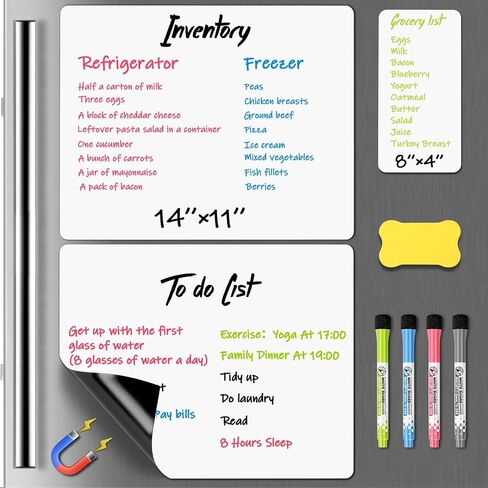 Inventory
Refrigerator
Half a carton of milk
Three eggs
A block of cheddar cheese
Leftover pasta salad in a container
One cucumber
A bunch of carrots
A jar of mayonnaise
A pack of bacon
Freezer
Peas
Chicken breasts
Ground beef
Pizza
Ice cream
Mixed vegetables
Fish fillets
Berries
14"×11"
Grocery list
Eggs
Milk
Bacon
Blueberry
Yogurt
Oatmeal
Butter
Salad
Juice
Turkey Breast
8"×4"
To do List
Get up with the first
glass of water
(8 glasses of water a day)
Pay bills
Exercise: Yoga At 17:00
Family Dinner At 19:00
Tidy up
Do laundry
Read
8 Hours Sleep